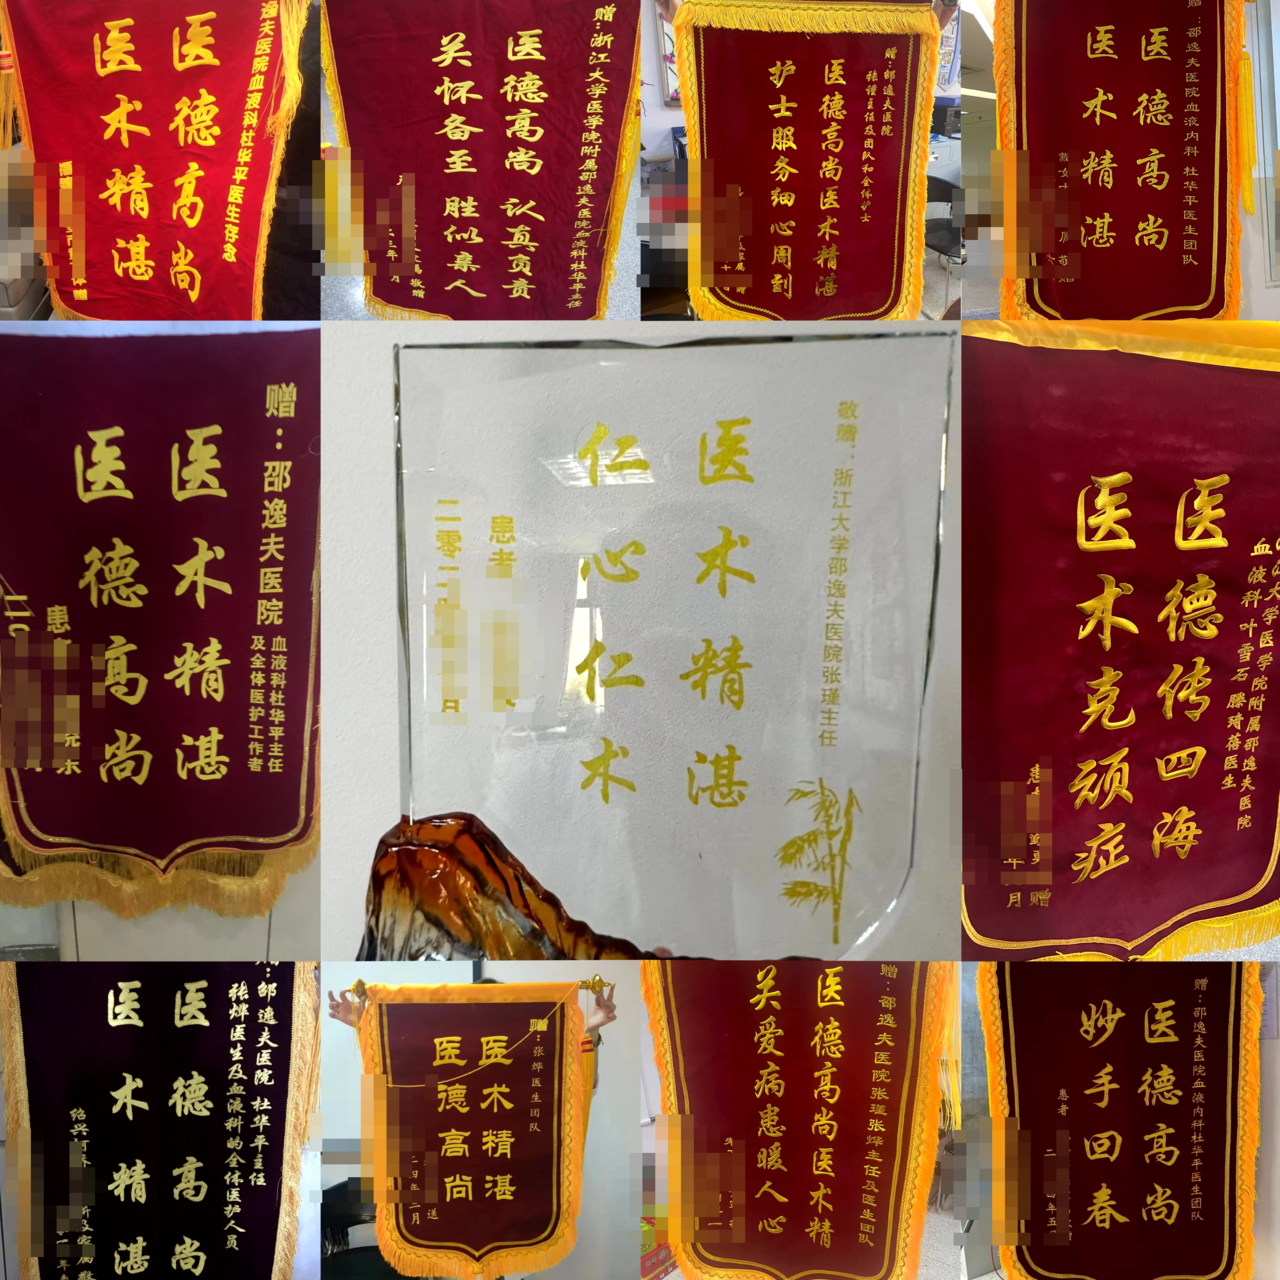 逸夫医院血液科杜华平医生存念
医德高尚
医术精湛
赠:浙江大学医学院附属邵逸夫医院血液科杜华平主任
医德高尚 认真负责
关怀备至 胜似亲人
敬赠
赠:邵逸夫医院
张瑾主任及团队和全体护士
医德高尚医术精湛
护士服务细心周到
赠:邵逸夫医院血液内科 杜华平医生团队
医德高尚
医术精湛
赠:邵逸夫医院
血液科杜华平主任
及全体医护工作者
医术精湛
医德高尚
敬赠:浙江大学邵逸夫医院张瑾主任
医术精湛
仁心仁术
患者
二零二
月
江大学医学院附属邵逸夫医院
血液科叶雪石 滕琦蓓医生
医德传四海
医术克顽症
赠
年 月
赠:邵逸夫医院 杜华平主任
张烨医生及血液科的全体医护人员
医德高尚
医术精湛
绍兴
赠:张烨医生团队
医术精湛
医德高尚
送
年二月
赠:邵逸夫医院张瑾张烨主任及医生团队
医德高尚医术精
关爱病患暖人心
赠:邵逸夫医院血液内科杜华平医生团队
医德高尚
妙手回春
患者
二 年五